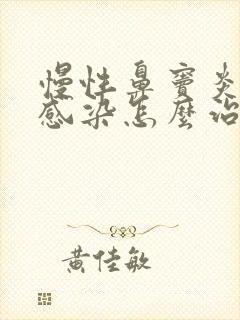 慢性鼻竇炎
感染怎麼治
黃佳敏